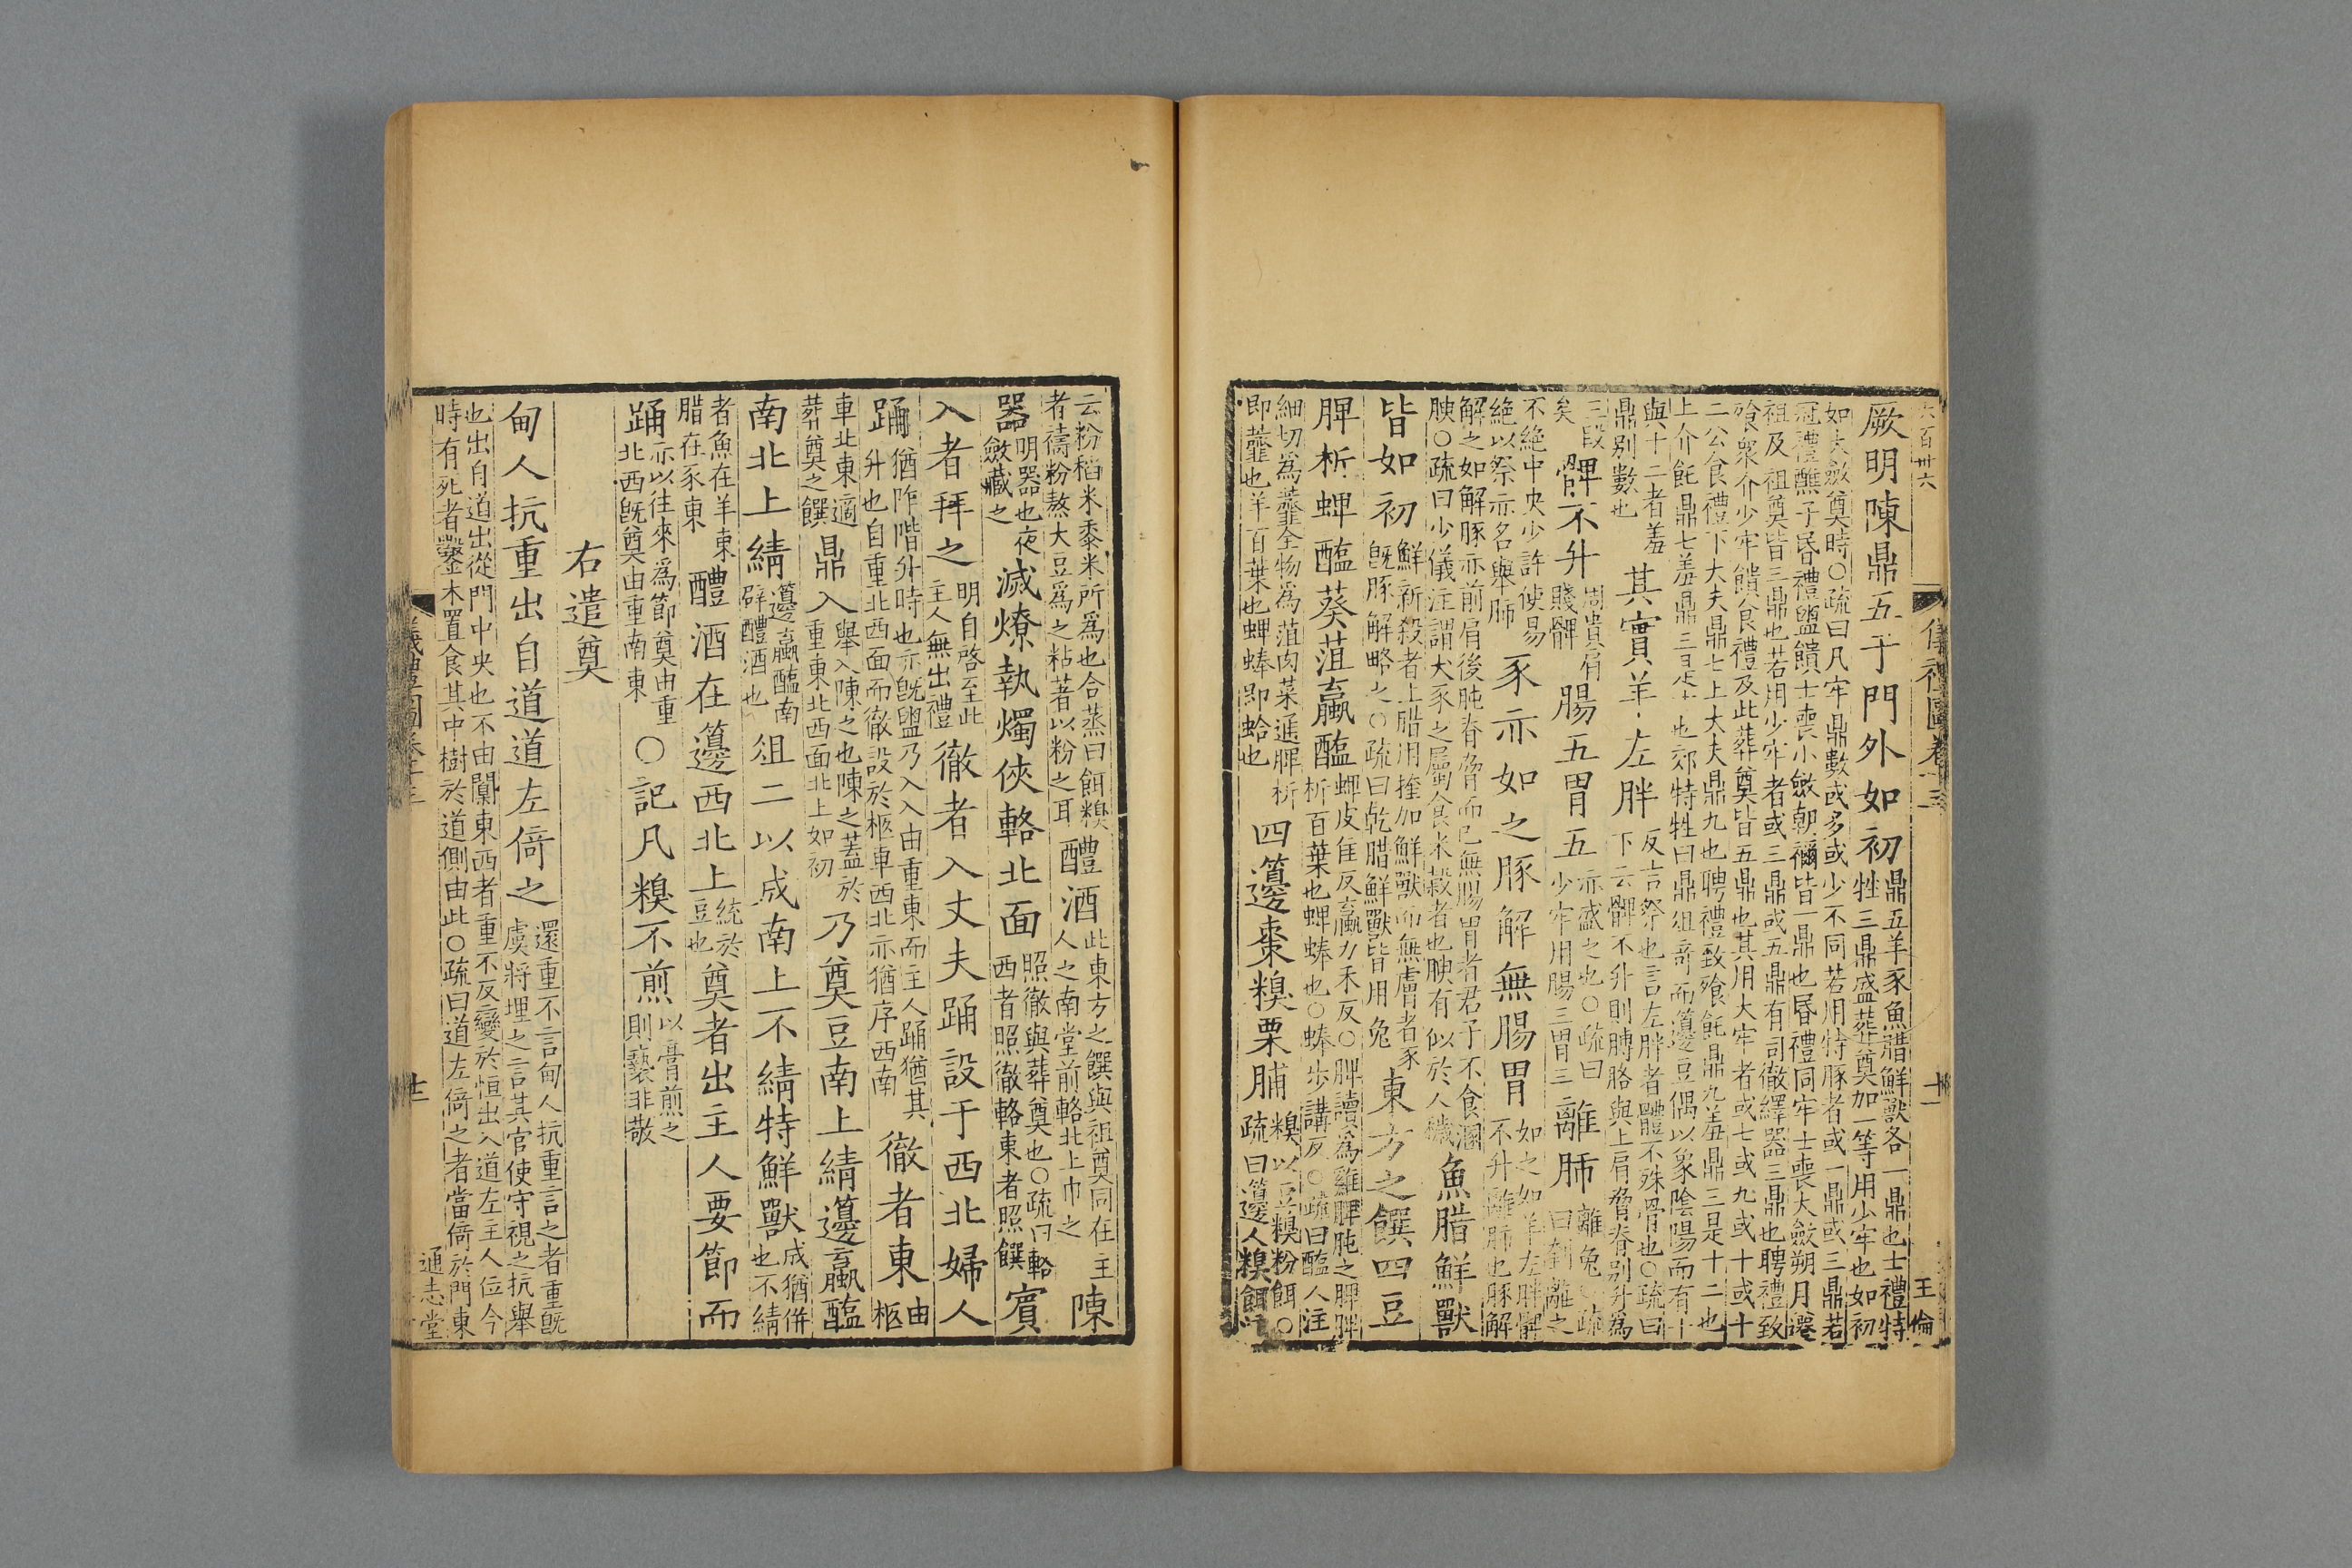 六百卅六　儀禮圖卷十三　十一　王倫
厥明陳鼎五于門外如初
鼎五羊豕魚腊鮮獸各一鼎也士禮特
牲三鼎盛葬奠加一等用少牢也如初
如大斂奠時○疏曰凡牢鼎數或多或少不同若用特豚者或一鼎或三鼎若
冠禮醮子昬禮盥饋士喪小斂朝禰皆一鼎也昬禮同牢士喪大斂朔月遷
祖及祖奠皆三鼎也若用少牢者或三鼎或五鼎有司徹繹器三鼎也聘禮致
飧衆介少牢饋食禮及此葬奠皆五鼎也其用大牢者或七或九或十或十
二公食禮下大夫鼎七上大夫鼎九也聘禮致飧飪鼎九羞鼎三是十二也
上介飪鼎七羞鼎三是十也郊特牲曰鼎俎奇而籩豆偶以象陰陽而有十
與十二者羞
鼎别數也
其實羊左胖
反吉祭也言左胖者體不殊骨也○疏曰
下云髀不升則膊胳與上肩脅脊别升爲
三段
矣
髀不升
周貴肩
賤髀
腸五胃五
亦盛之也○疏曰
少牢用腸三胃三
離肺
離○疏
曰離之
不絶中央少許使易
絶以祭亦名舉肺
豕亦如之豚解無腸胃
如之如羊左胖髀
不升離肺也豚解
解之如解豚亦前肩後肫脊脅而已無腸胃者君子不食溷
腴○疏曰少儀注謂犬豕之屬食米穀者也腴有似於人穢
魚腊鮮獸
皆如初
鮮新殺者士腊用加鮮獸而無膚者豕
旣豚解略之○疏曰乾腊鮮獸皆用兔
東方之饌四豆
脾析蜱醢葵菹蠃醢
蜱皮隹反蠃力禾反○脾讀爲雞脾肶之脾脾
析百葉也蜱蜯也○蜯步講反○疏曰醢人注
細切爲虀全物爲菹肉菜通脾析
即虀也羊百葉也蜱蜯即蛤也
四籩棗糗栗脯
糗以豆糗粉餌○
疏曰籩人糗餌
云粉稻米黍米所爲也合蒸曰餌糗
者擣粉熬大豆爲之粘著以粉之耳
醴酒
此東方之饌與祖奠同在主
人之南當前輅北上巾之
陳
器
明器也夜
斂藏之
滅燎執燭俠輅北面
照徹與葬奠也○疏曰輅
西者照徹輅東者照饌
賓
入者拜之
明自啓至此
主人無出禮
徹者入丈夫踊設于西北婦人
踊
猶阼階升時也亦旣盥乃入入由重東而主人踊猶其
升也自重北西面而徹設於柩車西北亦猶序西南
徹者東
由
柩
車北東適
葬奠之饌
鼎入
舉入陳之也陳之蓋於
重東北西面北上如初
乃奠豆南上綪籩蠃醢
南北上綪
籩蠃醢南
辟醴酒也
俎二以成南上不綪特鮮獸
成猶併
也不綪
者魚在羊東
腊在豕東
醴酒在籩西北上
統於
豆也
奠者出主人要節而
踊
亦以往來爲節奠由重
北西旣奠由重南東
○記凡糗不煎
以膏煎之
則褻非敬
右遣奠
甸人抗重出自道道左倚之
還重不言甸人抗重言之者重旣
虞將埋之言其官使守視之抗舉
也出自道出從門中央也不由闑東西者重不反變於恒出入道左主人位今
時有死者鑿木置食其中樹於道側由此○疏曰道左倚之者當倚於門東
儀禮圖卷十三　十二　通志堂